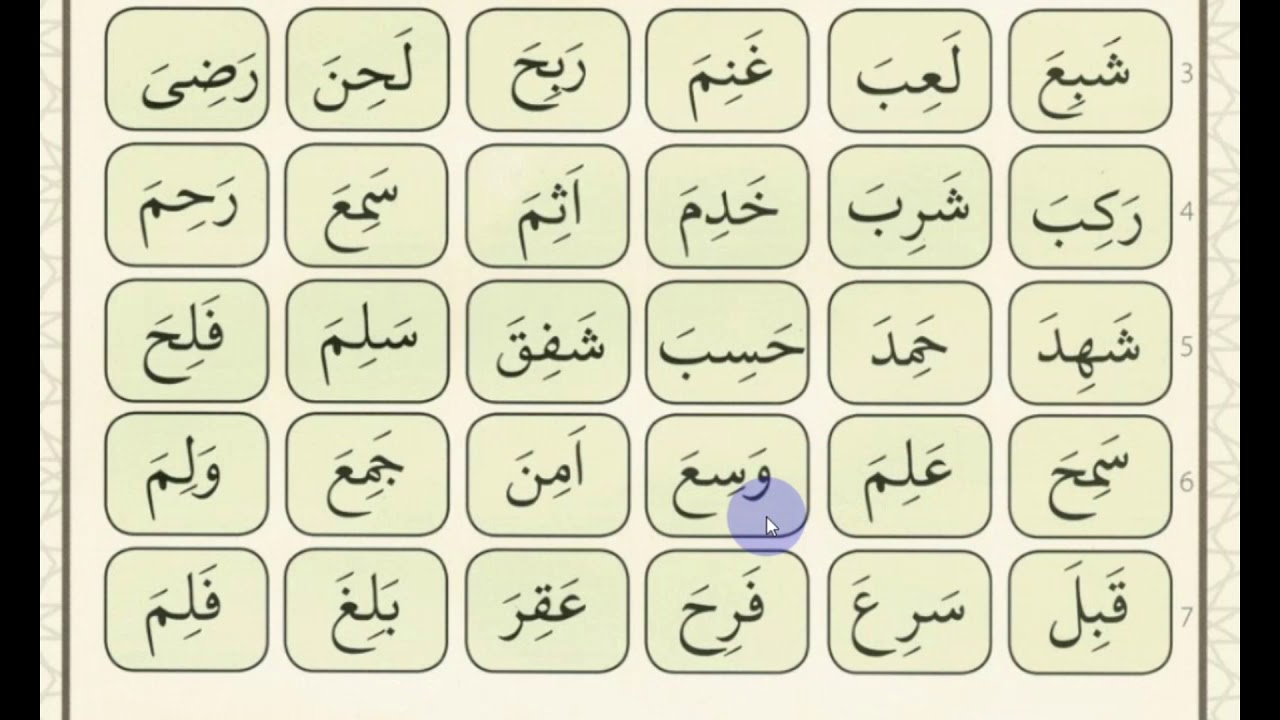 3 شَبِعَ لَعِبَ غَنِمَ رَبِحَ لَحِنَ رَضِىَ
4 رَكِبَ شَرِبَ خَدِمَ اَثِمَ سَمِعَ رَحِمَ
5 شَهِدَ حَمِدَ حَسِبَ شَفِقَ سَلِمَ فَلِحَ
6 سَمِحَ عَلِمَ وَسِعَ اَمِنَ جَمِعَ وَلِمَ
7 قَبِلَ سَرِعَ فَرِحَ عَقِرَ بَلِغَ فَلِمَ